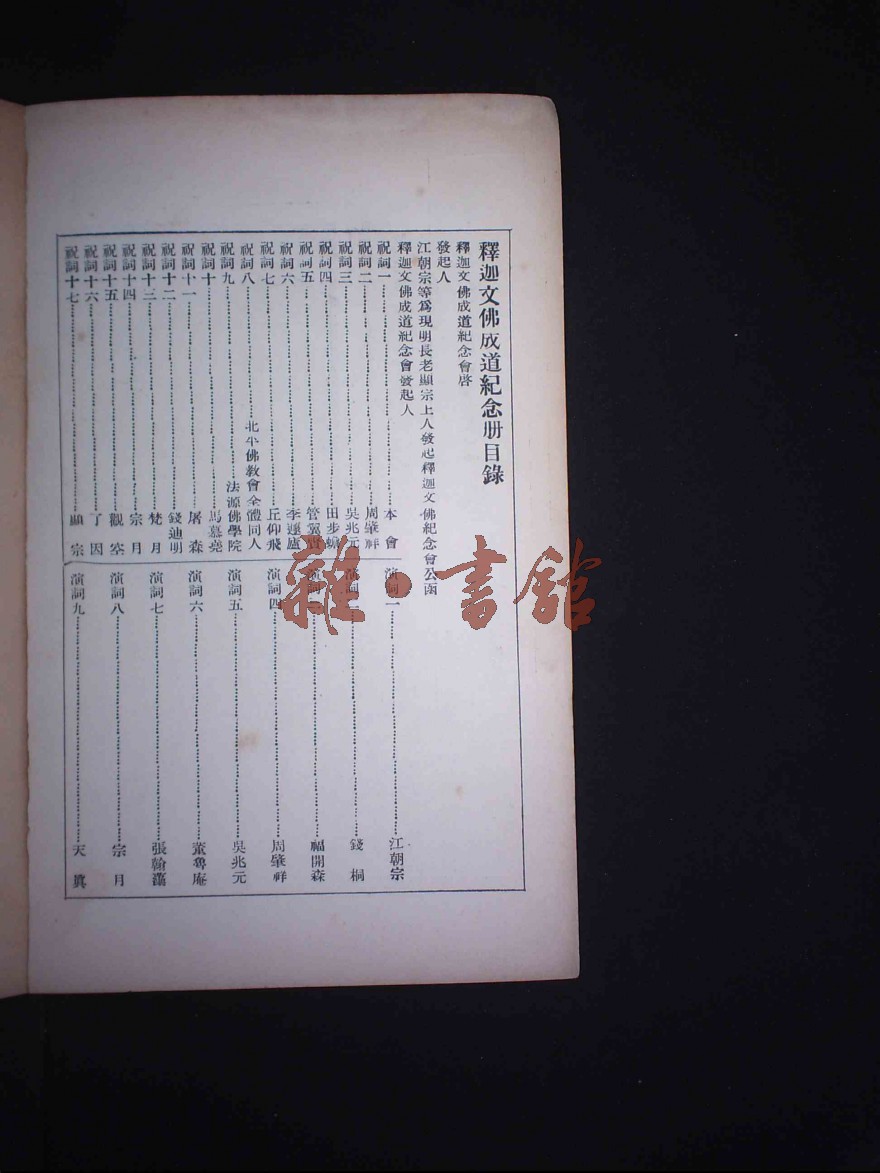 釋迦文佛成道紀念册目錄
釋迦文佛成道紀念會啓
發起人
江朝宗等爲現明長老顯宗上人發起釋迦文佛紀念會公函
釋迦文佛成道紀念會發起人
祝詞一 本會
祝詞二 周肇祥
祝詞三 吳兆元
祝詞四 田步
祝詞五 管翼賢
祝詞六 李運廬
祝詞七 丘仰飛
祝詞八 北平佛教會全體同人
祝詞九 法源佛學院
祝詞十 馬慕堯
祝詞十一 屠森
祝詞十二 錢迪明
祝詞十三 梵月
祝詞十四 宗月
祝詞十五 觀空
祝詞十六 了因
祝詞十七 顯宗
演詞一 江朝宗
演詞二 錢桐
演詞三 福開森
演詞四 周肇祥
演詞五 吳兆元
演詞六 董魯庵
演詞七 張翰藻
演詞八 宗月
演詞九 天眞
雜·書舘